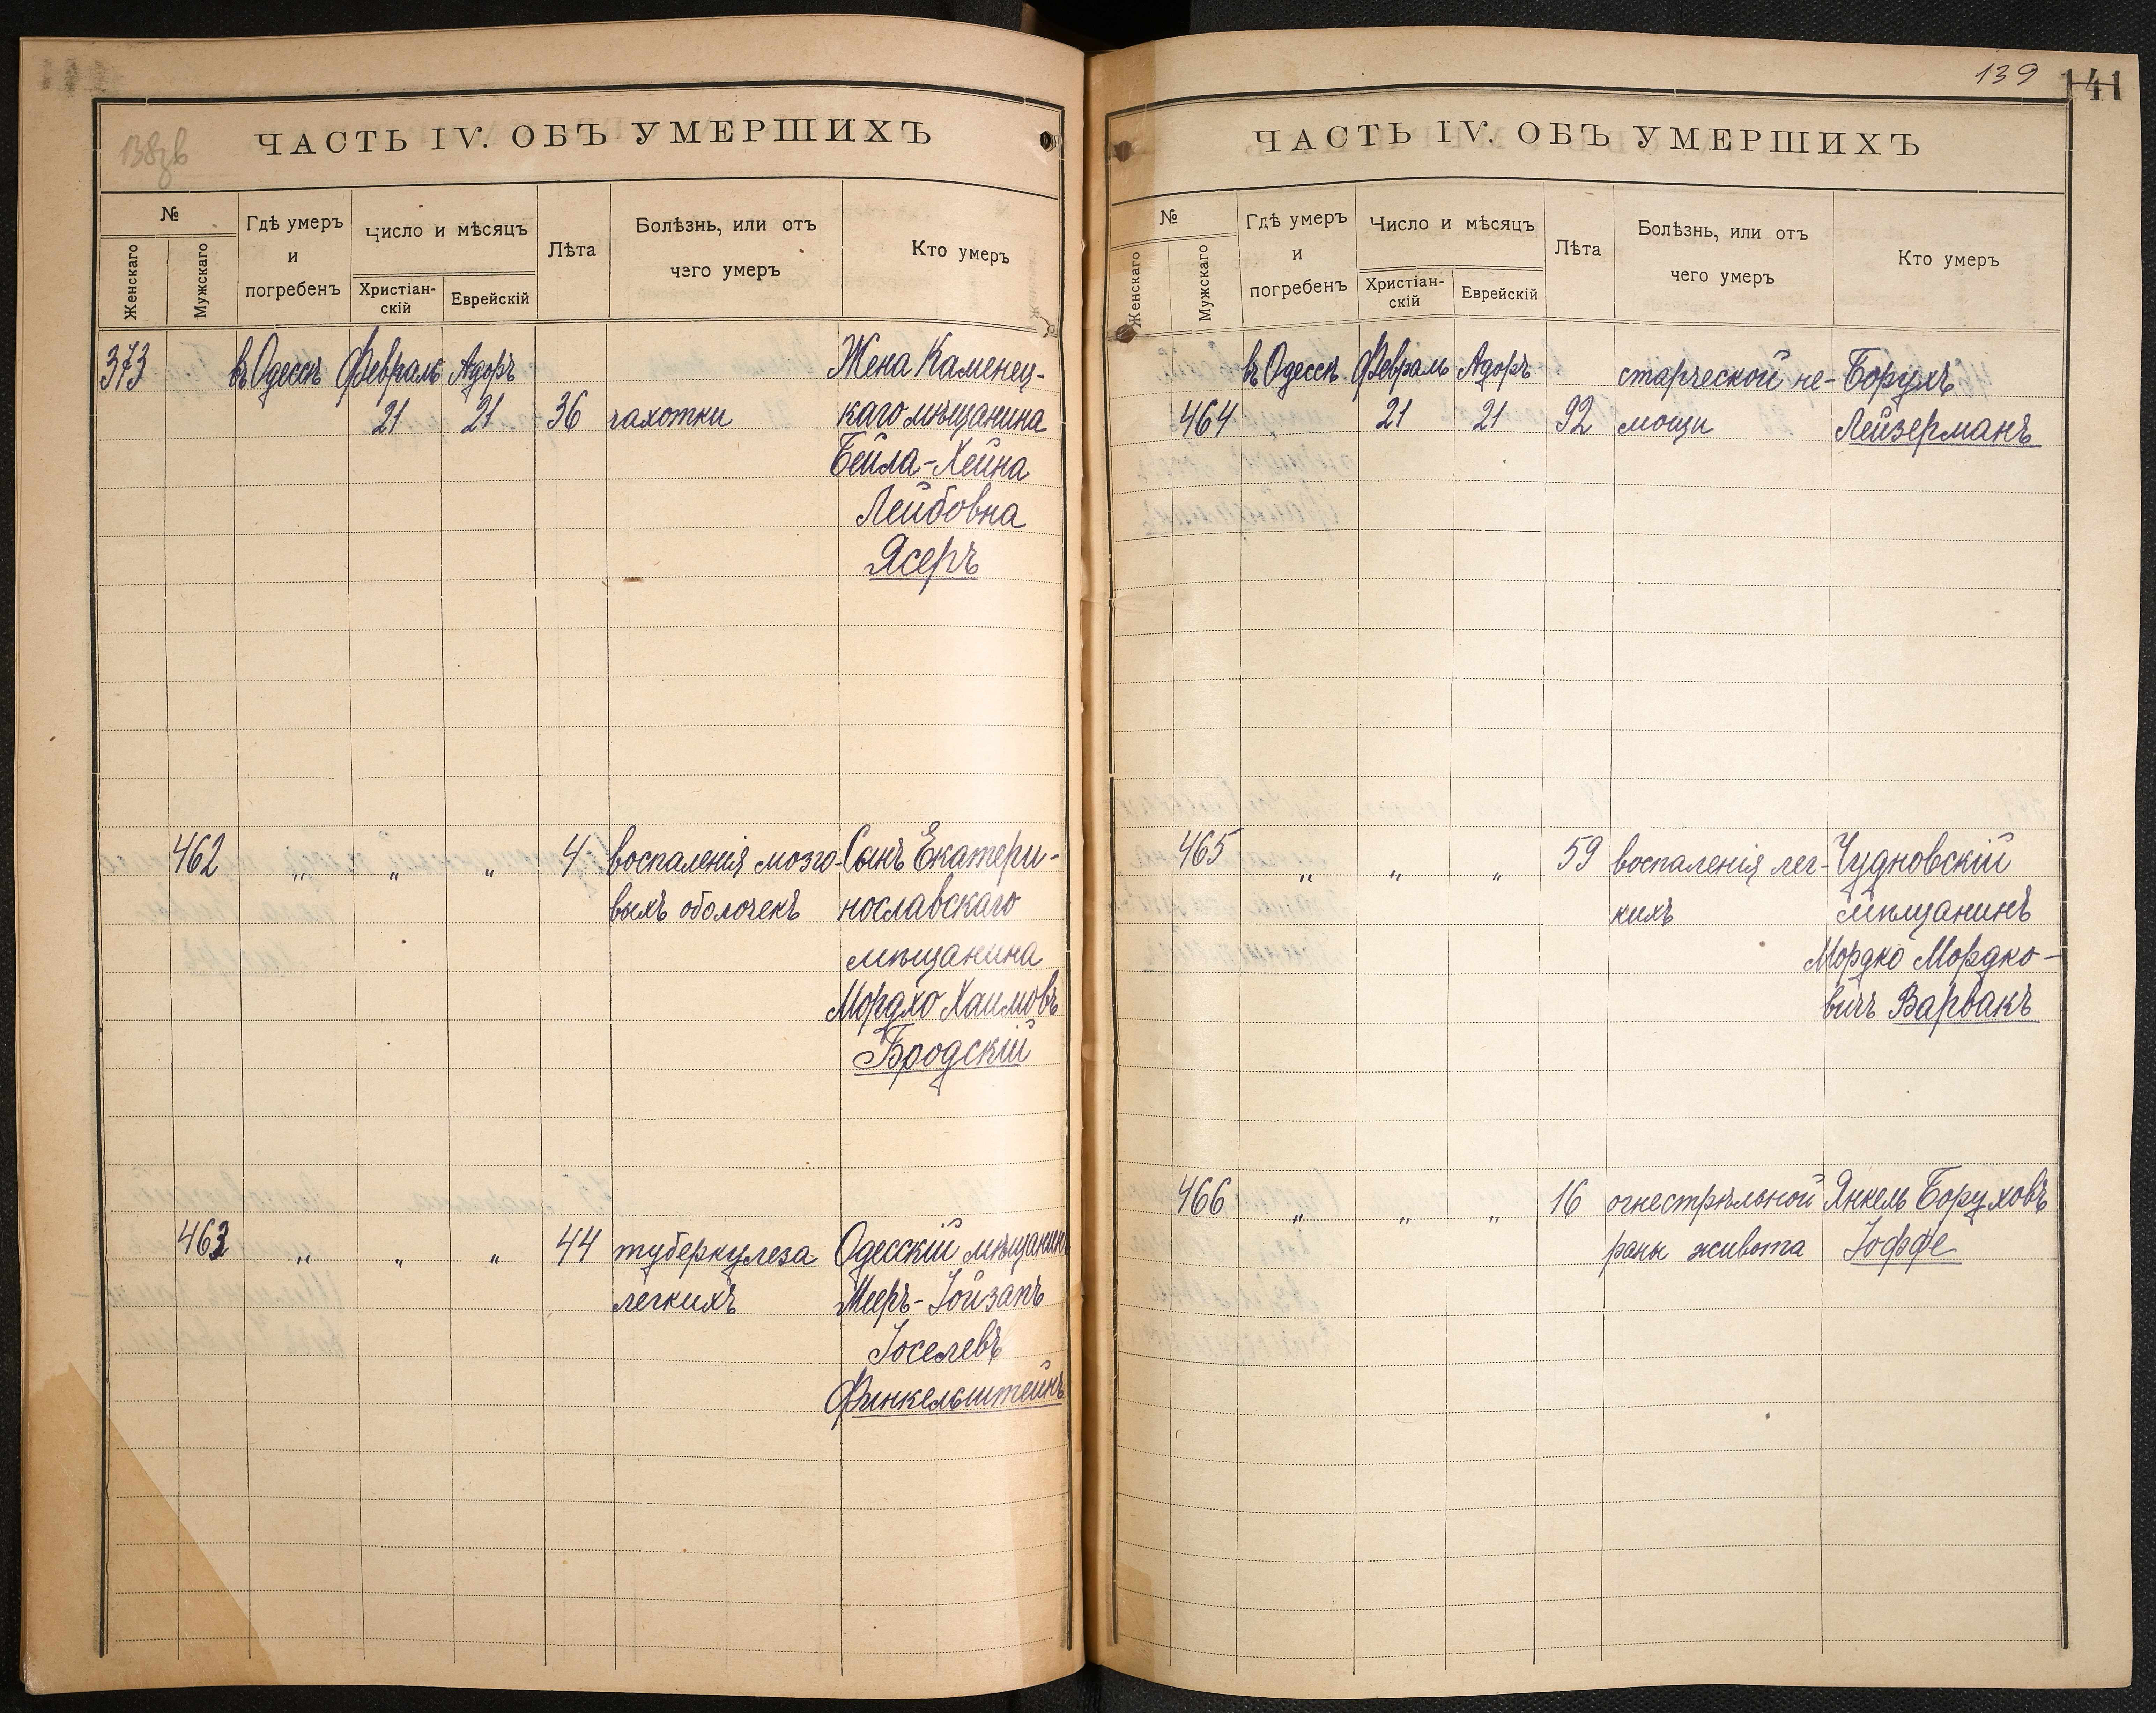 138зв
ЧАСТЬ IV. ОБЪ УМЕРШИХЪ
№
Женскаго
Мужскаго
Гдѣ умеръ
и
погребенъ
Число и мѣсяцъ
Христіан-
скій
Еврейскій
Лѣта
Болѣзнь, или отъ
чего умеръ
Кто умеръ
373 въ Одессѣ Февраль Адоръ Жена Каменец-
21 21 36 чахотки каго мѣщанина
Бейла-Хейна
Лейбовна
Ясеръ
462 „ „ „ 4 воспаленія мозго- Сынъ Екатери-
выхъ оболочекъ нославскаго
мѣщанина
Мордхо Хаимовъ
Бродскій
463 „ „ „ 44 туберкулеза Одесскій мѣщанинъ
легкихъ Мееръ-Іойзапъ
Іоселевъ
Финкельштейнъ
139
141
ЧАСТЬ IV. ОБЪ УМЕРШИХЪ
№
Женскаго
Мужскаго
Гдѣ умеръ
и
погребенъ
Число и мѣсяцъ
Христіан-
скій
Еврейскій
Лѣта
Болѣзнь, или отъ
чего умеръ
Кто умеръ
въ Одессѣ Февраль Адоръ старческой не- Борухъ
464 21 21 92 мощи Лейзерманъ
465 „ „ „ 59 воспаленія лег- Чудновскій
кихъ мѣщанинъ
Мордко Мордко-
вичъ Варвакъ
466 „ „ „ 16 огнестрѣльной Янкель Боруховъ
раны живота Іоффе